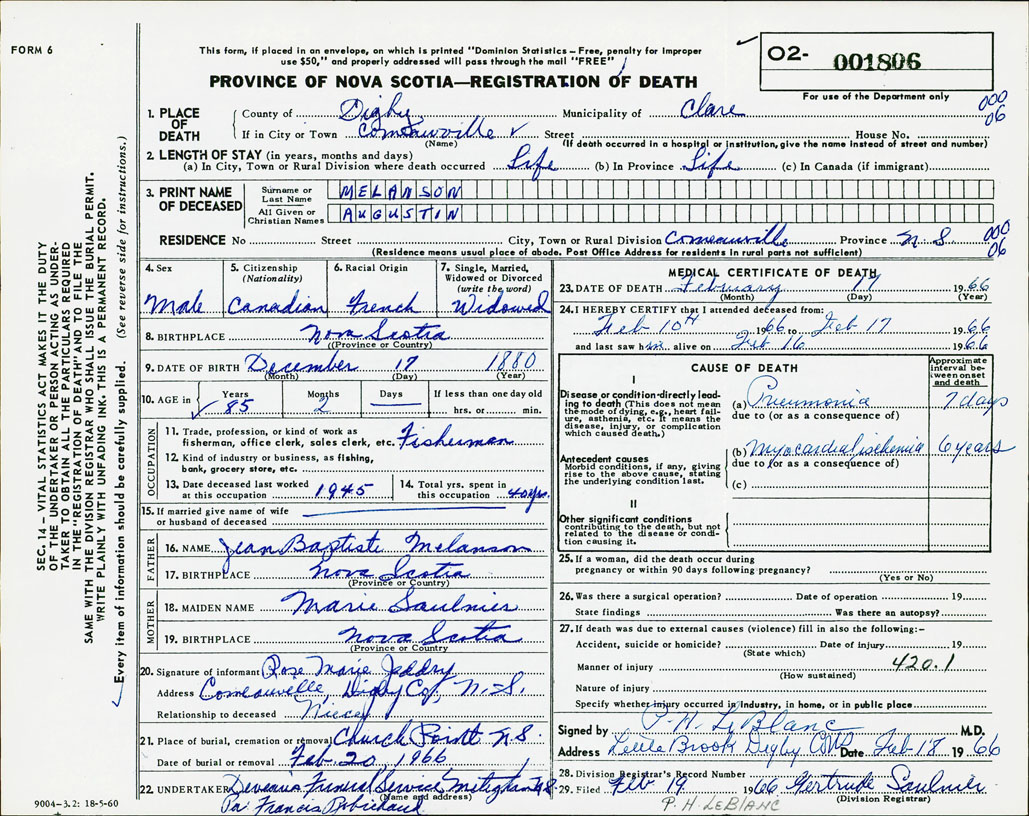 FORM 6
This form, if placed in an envelope, on which is printed "Dominion Statistics – Free, penalty for improper
use $50," and properly addressed will pass through the mail "FREE"
PROVINCE OF NOVA SCOTIA—REGISTRATION OF DEATH
O2- 001806
For use of the Department only
1. PLACE OF DEATH
County of Digby Municipality of Clare 000 06
If in City or Town Comeauville Street House No.
(Name) (If death occurred in a hospital or institution, give the name instead of street and number)
2. LENGTH OF STAY (in years, months and days)
(a) In City, Town or Rural Division where death occurred Life (b) In Province Life (c) In Canada (if immigrant)
3. PRINT NAME OF DECEASED
Surname or Last Name MELANSON
All Given or Christian Names AUGUSTIN
RESIDENCE No Street City, Town or Rural Division Comeauville Province N.S. 000 06
(Residence means usual place of abode. Post Office Address for residents in rural parts not sufficient)
4. Sex Male
5. Citizenship (Nationality) Canadian
6. Racial Origin French
7. Single, Married, Widowed or Divorced (write the word) Widowed
8. BIRTHPLACE Nova Scotia
(Province or Country)
9. DATE OF BIRTH December 17 1880
(Month) (Day) (Year)
10. AGE in Years 85 Months 2 Days — If less than one day old hrs. or min.
OCCUPATION
11. Trade, profession, or kind of work as
fisherman, office clerk, sales clerk, etc. Fisherman
12. Kind of industry or business, as fishing,
bank, grocery store, etc.
13. Date deceased last worked
at this occupation 1945
14. Total yrs. spent in
this occupation 40 yrs.
15. If married give name of wife
or husband of deceased
FATHER
16. NAME Jean Baptiste Melanson
17. BIRTHPLACE Nova Scotia
(Province or Country)
MOTHER
18. MAIDEN NAME Marie Saulnier
19. BIRTHPLACE Nova Scotia
(Province or Country
20. Signature of informant Rose Marie Jeddry
Address Comeauville, Digby Co., N.S.
Relationship to deceased Niece
21. Place of burial, cremation or removal Church Point N.S.
Date of burial or removal Feb. 20, 1966
22. UNDERTAKER Funeral Service, Meteghan N.S.
(Name and address)
Per Francis Robichaud
9004-3.2: 18-5-60
MEDICAL CERTIFICATE OF DEATH
23. DATE OF DEATH February 17 1966
(Month) (Day) (Year)
24. I HEREBY CERTIFY that I attended deceased from:
Feb 10th 1966 to Feb 17 1966
and last saw him alive on Feb 16 1966
CAUSE OF DEATH
Approximate interval between onset and death
I
Disease or condition directly leading to death (This does not mean the mode of dying, e.g., heart failure, asthenia, etc. It means the disease, injury, or complication which caused death.)
(a) Pneumonia 7 days
due to (or as a consequence of)
Antecedent causes
Morbid conditions, if any, giving rise to the above cause, stating the underlying condition last.
(b) Myocardial ischemia 6 years
due to (or as a consequence of)
(c)
II
Other significant conditions
contributing to the death, but not related to the disease or condition causing it.
25. If a woman, did the death occur during
pregnancy or within 90 days following pregnancy?
(Yes or No)
26. Was there a surgical operation? Date of operation 19
State findings Was there an autopsy?
27. If death was due to external causes (violence) fill in also the following:–
Accident, suicide or homicide? Date of injury 19
(State which)
Manner of injury 420.1
(How sustained)
Nature of injury
Specify whether injury occurred in industry, in home, or in public place
Signed by P. H. LeBlanc M.D.
Address Little Brook Digby Date Feb 18 1966
28. Division Registrar's Record Number
29. Filed Feb 19 1966 Gertrude Saulnier
(Division Registrar)
P. H LEBLANC
SEC. 14 – VITAL STATISTICS ACT MAKES IT THE DUTY
OF THE UNDERTAKER OR PERSON ACTING AS UNDER-
TAKER TO OBTAIN ALL THE PARTICULARS REQUIRED
IN THE "REGISTRATION OF DEATH" AND TO FILE THE
SAME WITH THE DIVISION REGISTRAR WHO SHALL ISSUE THE BURIAL PERMIT.
WRITE PLAINLY WITH UNFADING INK. THIS IS A PERMANENT RECORD.
Every item of information should be carefully supplied. (See reverse side for instructions.)